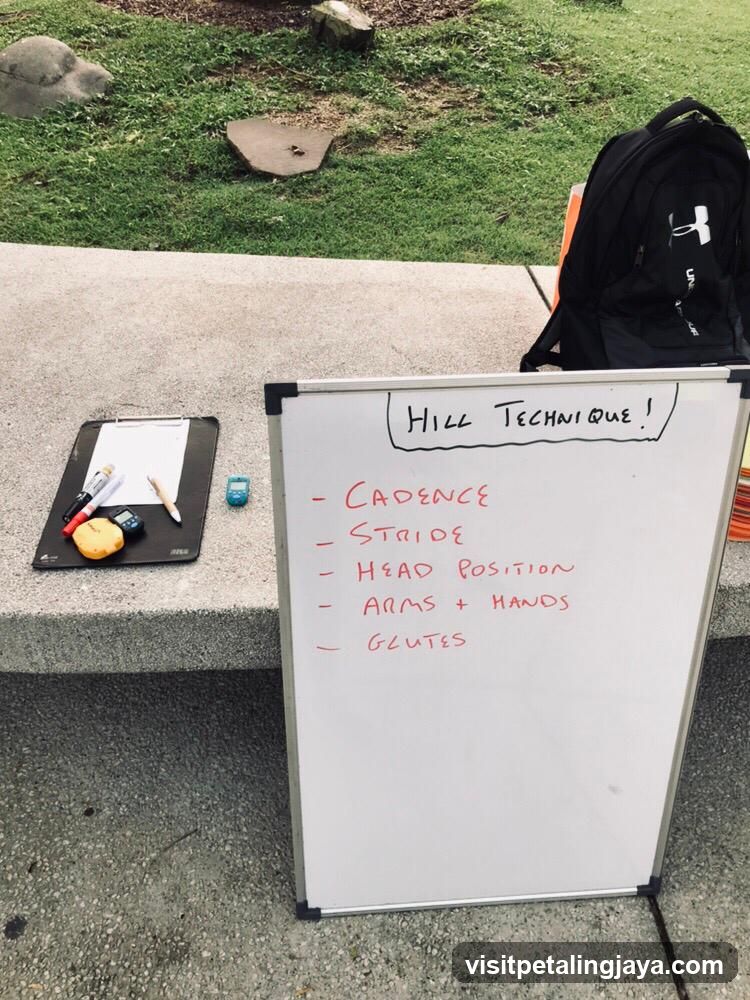 UNDER ARMOUR
HILL TECHNIQUE!
- CADENCE
- STRIDE
- HEAD POSITION
- ARMS + HANDS
- GLUTES
visitpetalingjaya.com